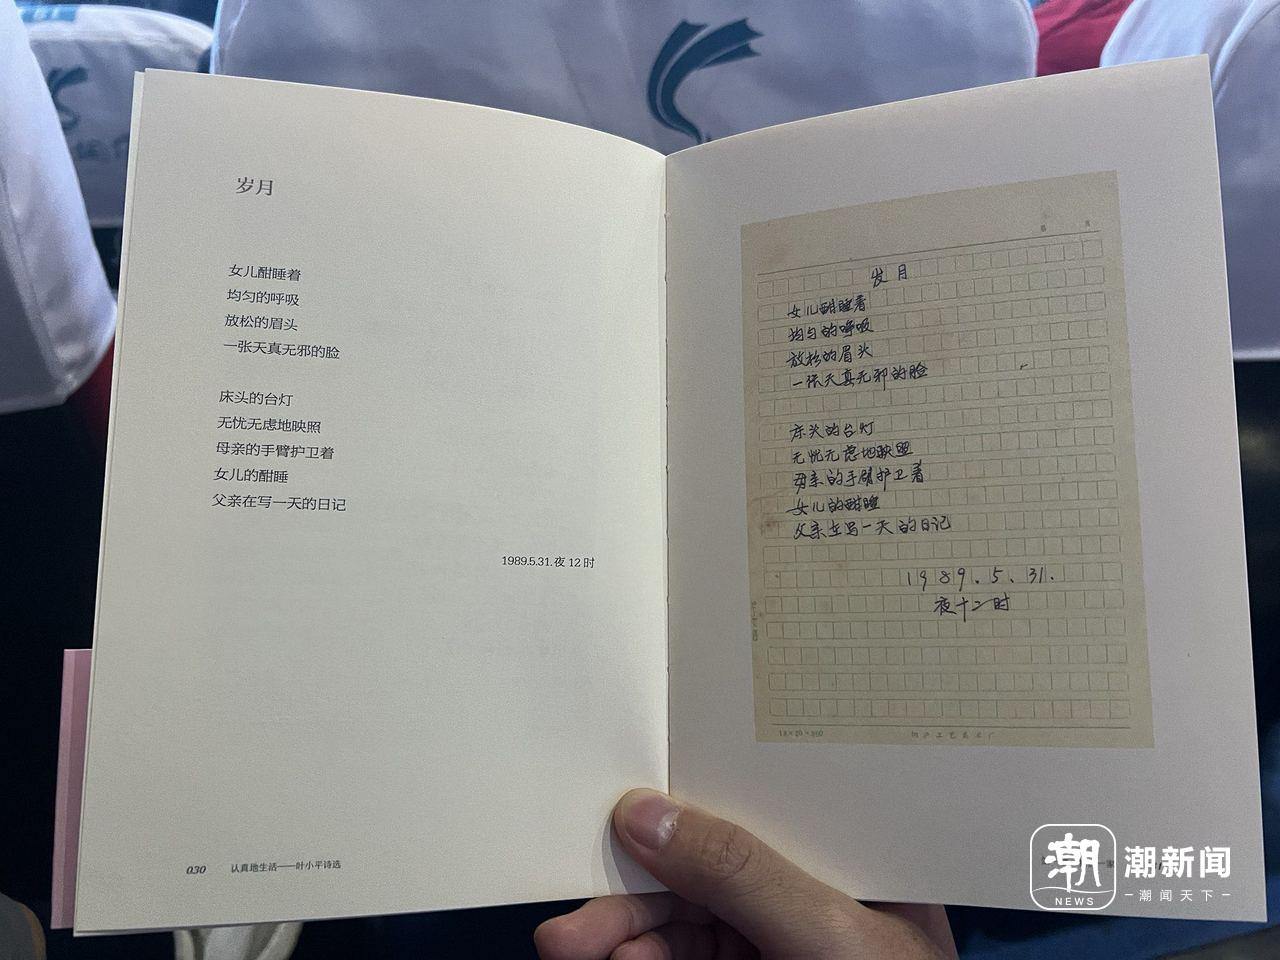 岁月
女儿酣睡着
均匀的呼吸
放松的眉头
一张天真无邪的脸
床头的台灯
无忧无虑地映照
母亲的手臂护卫着
女儿的酣睡
父亲在写一天的日记
1989.5.31.夜 12 时
030 认真地生活——叶小平诗选
岁月
女儿酣睡着
均匀的呼吸
放松的眉头
一张天真无邪的脸
床头的台灯
无忧无虑地映照
母亲的手臂护卫着
女儿的酣睡
父亲在写一天的日记
1989.5.31.
夜十二时
潮
NEWS
潮新闻
潮闻天下